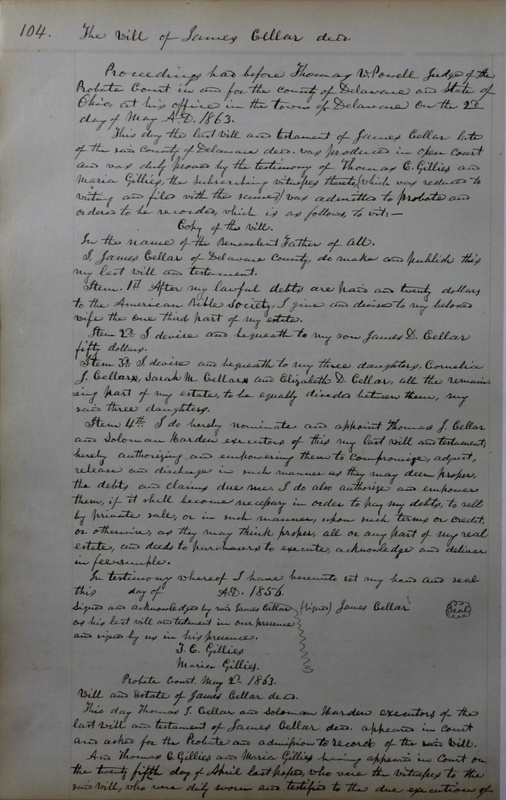 104. The Will of James Cellar decd.
Proceedings had before Thomas W. Powell Judge of the
Probate Court in and for the county of Delaware and State of
Ohio, at his office in the town of Delaware on the 2d
day of May A.D. 1863.
This day the last will and testament of James Cellar late
of the said County of Delaware decd. was produced in open court
and was duly proved by the testimony of Thomas C. Gillies and
Maria Gillies, the subscribing witnesses thereto, (which was reduced to
writing and filed with the same,) was admitted to probate and
ordered to be recorded, which is as follows, to wit:—
Copy of the will.
In the name of the Benevolent Father of All.
I, James Cellar of Delaware County, do make and publish this
my last will and testament.
Item. 1st After my lawful debts are paid and twenty dollars
to the American Bible Society, I give and devise to my beloved
wife the one third part of my estate.
Item 2d. I devise and bequeath to my son James D. Cellar
fifty dollars.
Item 3d. I devise and bequeath to my three daughters, Cornelia
J. Cellar, Sarah M. Cellar and Elizabeth D. Cellar, all the remain-
ing part of my estate, to be equally divided between them, my
said three daughters.
Item 4th. I do hereby nominate and appoint Thomas J. Cellar
and Soloman Harden executors of this my last will and testament,
hereby authorizing, and empowering them to compromize, adjust,
release and discharge in such manner as they may deem proper,
the debts and claims due me. I do also authorize and empower
them, if it shall become necessary in order to pay my debts, to sell
by private sale, or in such manner, upon such terms or credit,
or otherwise, as they may think proper, all or any part of my real
estate, and deeds to purchasers to execute, acknowledge and deliver
in fee simple.
In testimony whereof I have hereunto set my hand and seal
this day of A.D. 1856.
Signed and acknowledged by said James Cellar (Signed) James Cellar Seal
as his last will and testament in our presence
and signed by us in his presence.
T. C. Gillies
Maria Gillies.
Probate Court, May 2d. 1863.
Will and Estate of James Cellar decd.
This day Thomas J. Cellar and Soloman Harden executors of the
last will and testament of James Cellar decd. appeared in court
and asked for the Probate and admission to record of the said Will.
And Thomas C. Gillies and Maria Gillies having appeared in Court on
the twenty fifth day of April last passed, who were the witnesses to the
said will, who were duly sworn and testified to the due execution of